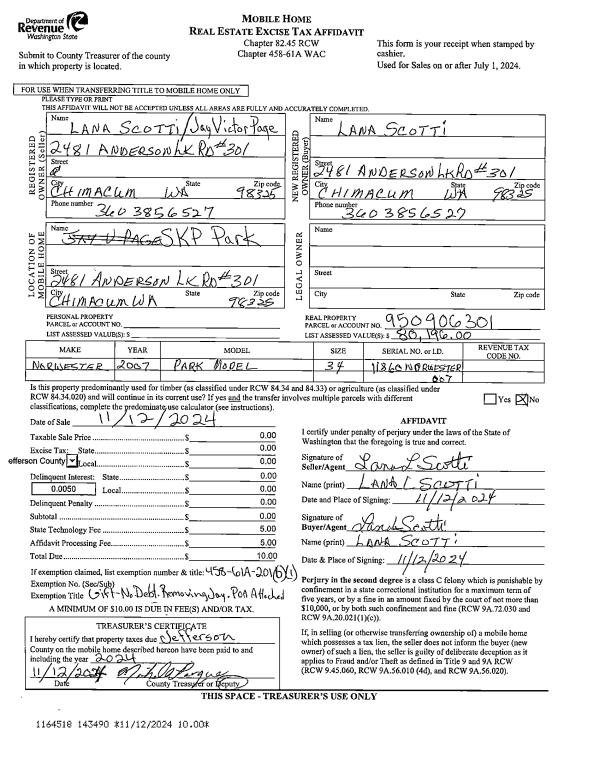 Department of
Revenue
Washington State
MOBILE HOME
REAL ESTATE EXCISE TAX AFFIDAVIT
Chapter 82.45 RCW
Chapter 458-61A WAC
Submit to County Treasurer of the county
in which property is located.
This form is your receipt when stamped by
cashier.
Used for Sales on or after July 1, 2024.
FOR USE WHEN TRANSFERRING TITLE TO MOBILE HOME ONLY
PLEASE TYPE OR PRINT
THIS AFFIDAVIT WILL NOT BE ACCEPTED UNLESS ALL AREAS ARE FULLY AND ACCURATELY COMPLETED.
REGISTERED OWNER (Seller)
Name LANA SCOTTI/Jay Victor Page
2481 ANDERSON LK RD #301
Street
City CHIMACUM State WA Zip code 98325
Phone number 360 385 6527
NEW REGISTERED OWNER (Buyer)
Name LANA SCOTTI
Street 2481 ANDERSON LK RD #301
City CHIMACUM State WA Zip code 98325
Phone number 360 385 6527
LOCATION OF MOBILE HOME
Name JAY V PAGE SKP Park
Street 2481 ANDERSON LK RD #301
City CHIMACUM WA State Zip code 98325
LEGAL OWNER
Name
Street
City State Zip code
PERSONAL PROPERTY
PARCEL or ACCOUNT NO.
LIST ASSESSED VALUE(S): $
REAL PROPERTY
PARCEL or ACCOUNT NO. 950906301
LIST ASSESSED VALUE(S): $ 80,196.00
MAKE YEAR MODEL SIZE SERIAL NO. or I.D. REVENUE TAX CODE NO.
NORWESTER 2007 PARK MODEL 34 11860 NORWESTER
007
Is this property predominantly used for timber (as classified under RCW 84.34 and 84.33) or agriculture (as classified under
RCW 84.34.020) and will continue in its current use? If yes and the transfer involves multiple parcels with different
classifications, complete the predominate use calculator (see instructions).
Yes No
Date of Sale 11/12/2024
Taxable Sale Price $ 0.00
Excise Tax: State $ 0.00
efferson County Local $ 0.00
Delinquent Interest: State $ 0.00
0.0050 Local $ 0.00
Delinquent Penalty $ 0.00
Subtotal $ 0.00
State Technology Fee $ 5.00
Affidavit Processing Fee $ 5.00
Total Due $ 10.00
If exemption claimed, list exemption number & title: 458-61A-201(b)(1)
Exemption No. (Sec/Sub)
Exemption Title Gift-No Debt. Removing Jay. POA Attached
A MINIMUM OF $10.00 IS DUE IN FEE(S) AND/OR TAX.
TREASURER'S CERTIFICATE
I hereby certify that property taxes due Jefferson
County on the mobile home described hereon have been paid to and
including the year 2024
11/12/2024
Date County Treasurer or Deputy
AFFIDAVIT
I certify under penalty of perjury under the laws of the State of
Washington that the foregoing is true and correct.
Signature of
Seller/Agent Lana L Scotti
Name (print) LANA L SCOTTI
Date and Place of Signing: 11/12/2024
Signature of
Buyer/Agent Lana Scotti
Name (print) LANA SCOTTI
Date & Place of Signing: 11/12/2024
Perjury in the second degree is a class C felony which is punishable by
confinement in a state correctional institution for a maximum term of
five years, or by a fine in an amount fixed by the court of not more than
$10,000, or by both such confinement and fine (RCW 9A.72.030 and
RCW 9A.20.021(1)(c)).
If, in selling (or otherwise transferring ownership of) a mobile home
which possesses a tax lien, the seller does not inform the buyer (new
owner) of such a lien, the seller is guilty of deliberate deception as it
applies to Fraud and/or Theft as defined in Title 9 and 9A RCW
(RCW 9.45.060, RCW 9A.56.010 (4d), and RCW 9A.56.020).
THIS SPACE - TREASURER'S USE ONLY
1164518 143490 *11/12/2024 10.00*